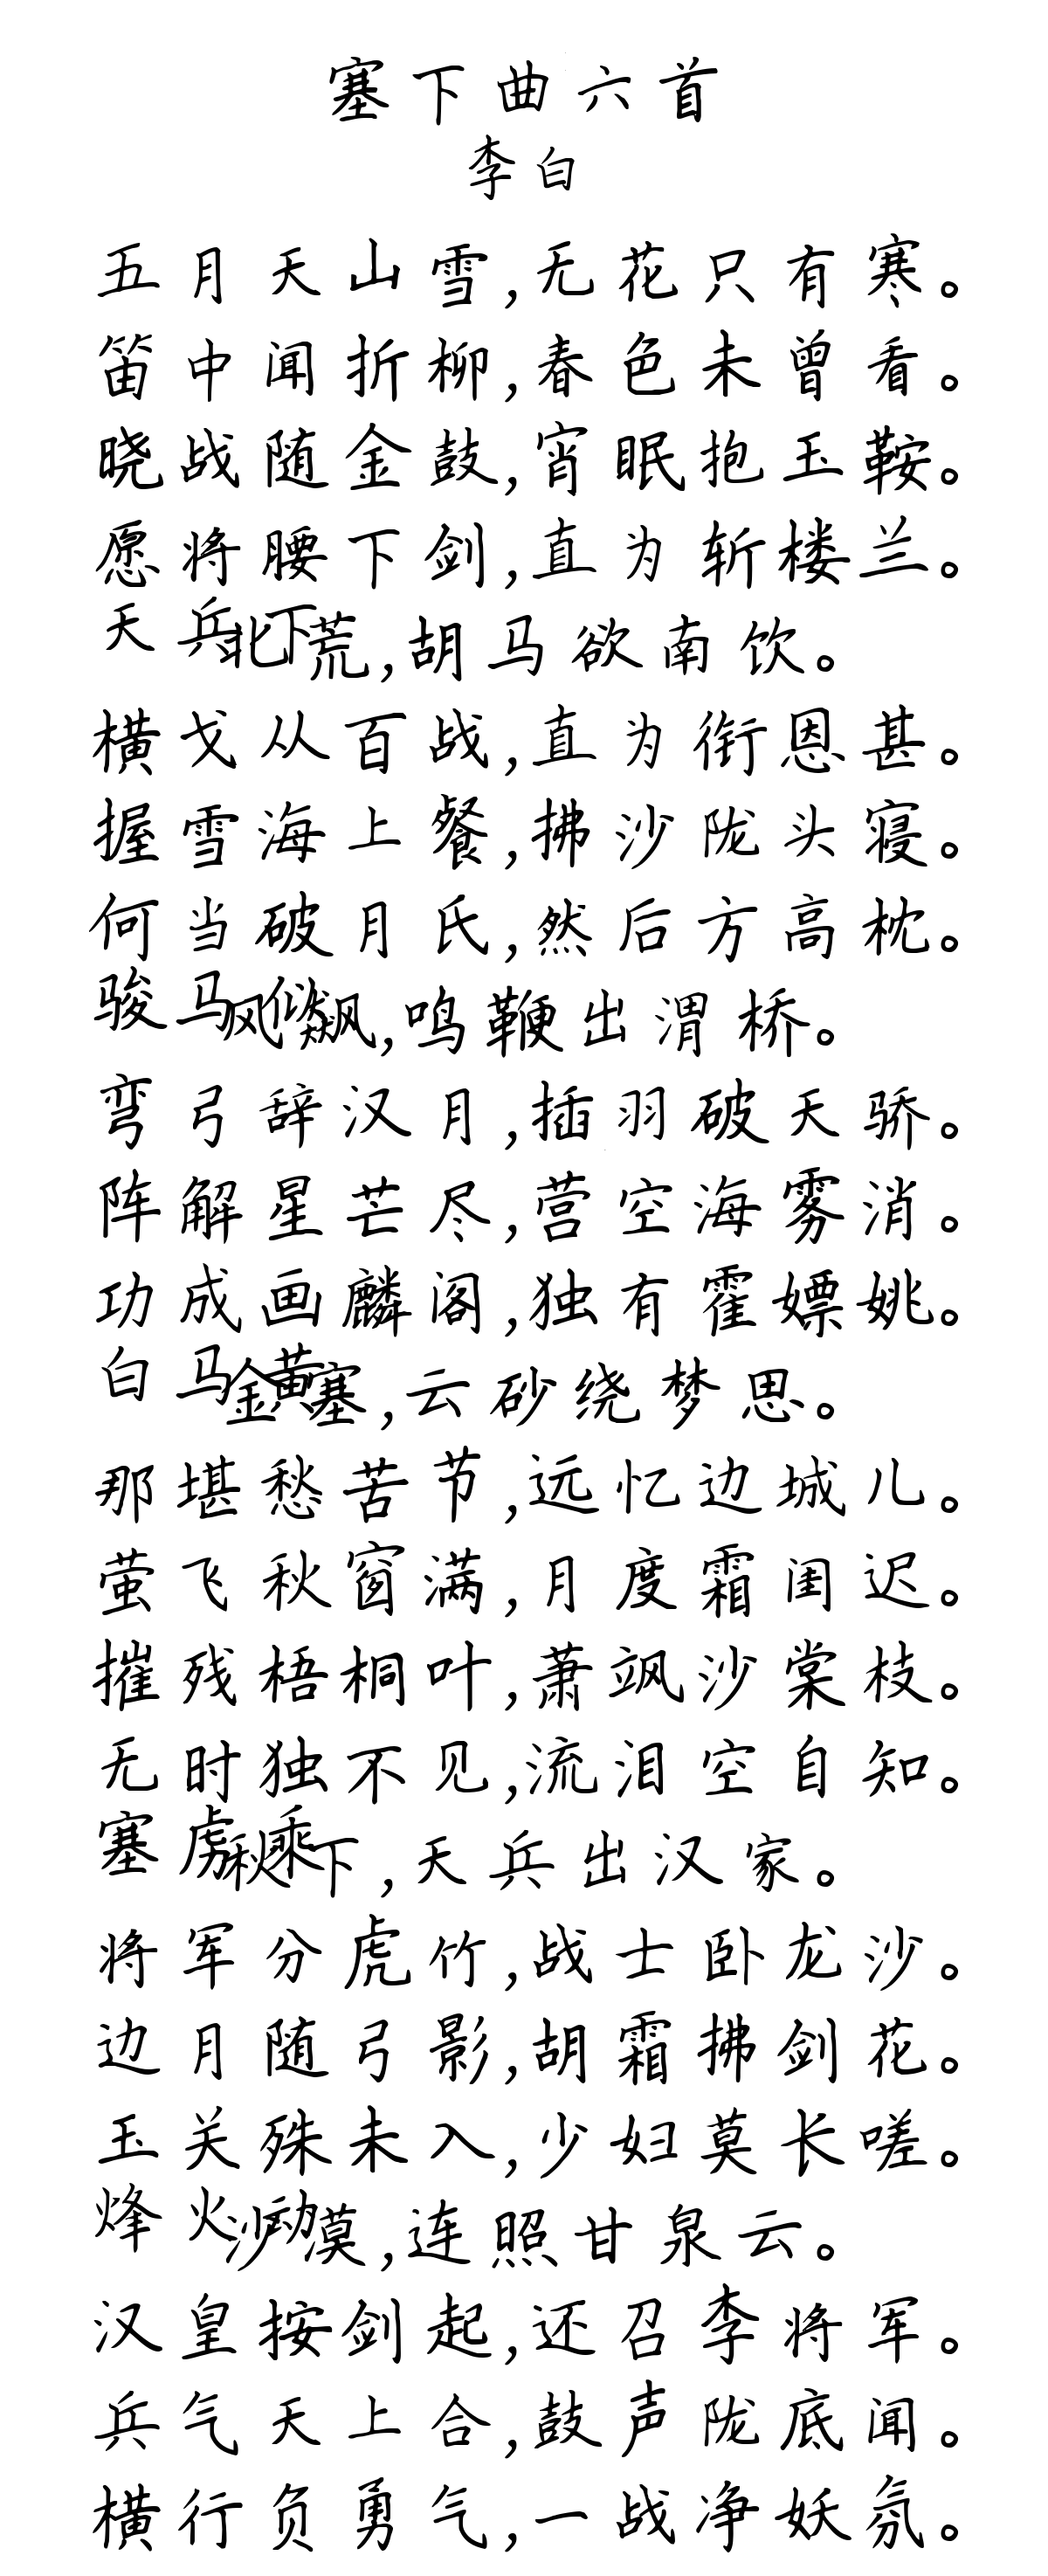 塞下曲六首
李白
五月天山雪,无花只有寒。
笛中闻折柳,春色未曾看。
晓战随金鼓,宵眠抱玉鞍。
愿将腰下剑,直为斩楼兰。
天兵下北荒,胡马欲南饮。
横戈从百战,直为衔恩甚。
握雪海上餐,拂沙陇头寝。
何当破月氏,然后方高枕。
骏马似风飙,鸣鞭出渭桥。
弯弓辞汉月,插羽破天骄。
阵解星芒尽,营空海雾消。
功成画麟阁,独有霍嫖姚。
白马黄金塞,云砂绕梦思。
那堪愁苦节,远忆边城儿。
萤飞秋窗满,月度霜闺迟。
摧残梧桐叶,萧飒沙棠枝。
无时独不见,流泪空自知。
塞虏乘秋下,天兵出汉家。
将军分虎竹,战士卧龙沙。
边月随弓影,胡霜拂剑花。
玉关殊未入,少妇莫长嗟。
烽火动沙漠,连照甘泉云。
汉皇按剑起,还召李将军。
兵气天上合,鼓声陇底闻。
横行负勇气,一战净妖氛。